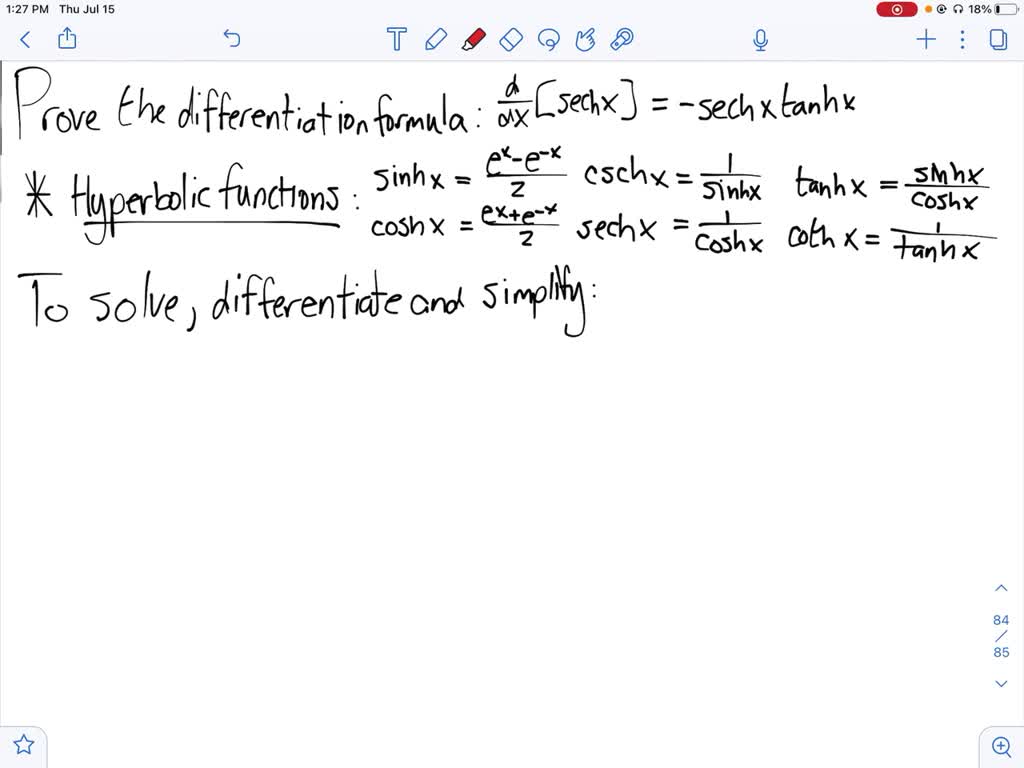 1:27 PM Thu Jul 15 18%
Prove the differentiation formula: d/dx [sechx] = -sechx tanhx
* Hyperbolic functions: sinhx = (e^x - e^-x)/2 cschx = 1/sinhx tanhx = sinhx/coshx
coshx = (e^x + e^-x)/2 sechx = 1/coshx cothx = 1/tanhx
To solve, differentiate and simplify:
84
/
85